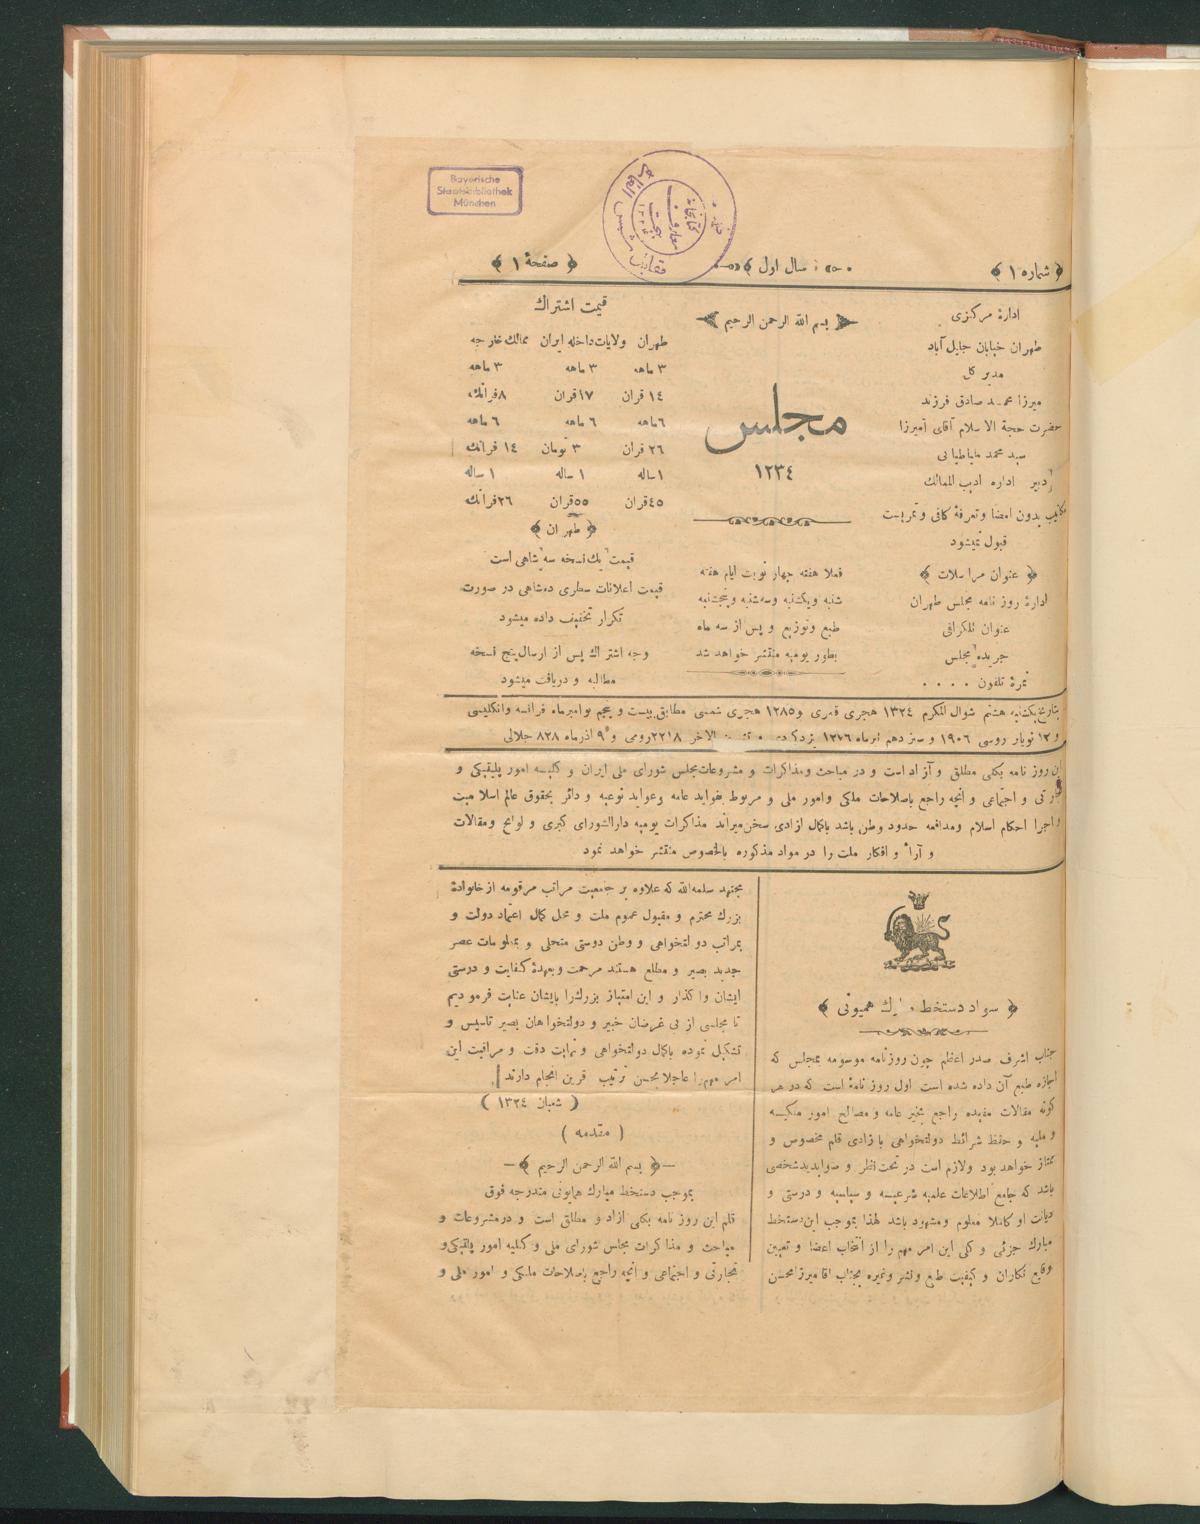 Bayerische
Staatsbibliothek
München
كتابخانهٔ
معارف
بهجت
﴿ شماره ١ ﴾
سال اول
﴿ صفحهٔ ١ ﴾
ادارهٔ مركزى
طهران خيابان جليل آباد
مدير كل
ميرزا محمد صادق فرزند
حضرت حجة الاسلام آقاى آميرزا
سيد محمد طباطبائى
دبير اداره اديب الممالك
مكاتيب بدون امضا وتعرفهٔ كافى وتمر پست
قبول نميشود
﴿ عنوان مراسلات ﴾
ادارهٔ روز نامه مجلس طهران
عنوان تلگرافى
جريدهٔ مجلس
نمرهٔ تلفون ٠ ٠ ٠ ٠
بسم الله الرحمن الرحيم
مجلس
١٢٣٤
فعلا هفته چهار نوبت ايام هفته
شنبه ويكشنبه وسه شنبه وپنجشنبه
طبع وتوزيع و پس از سه ماه
بطور يوميه منتشر خواهد شد
قيمت اشتراك
طهران ولايات داخله ايران ممالك خارجه
٣ ماهه ٣ ماهه ٣ ماهه
١٤ قران ١٧ قران ٨ فرانك
٦ ماهه ٦ ماهه ٦ ماهه
٢٦ قران ٣ تومان ١٤ فرانك
١ ساله ١ ساله ١ ساله
٤٥ قران ٥٥ قران ٢٦ فرانك
﴿ طهران ﴾
قيمت يك نسخه سه شاهى است
قيمت اعلانات سطرى ده شاهى در صورت
تكرار تخفيف داده ميشود
وجه اشتراك پس از ارسال پنج نسخه
مطالبه و دريافت ميشود
بتاريخ يكشنبه هشتم شوال المكرم ١٣٢٤ هجرى قمرى و١٢٨٥ هجرى شمسى مطابق بيست و پنجم نوامبرماه فرانسه وانگليسى
و ١٢ نويابر روسى ١٩٠٦ و سيزدهم تيرماه ١٢٧٦ يزدگردى و الاخر ٢٢١٨ رومى و ٩ آذرماه ٨٢٨ جلالى
اين روز نامه بكلى مطلق و آزاد است و در مباحث ومذاكرات و مشروعات مجلس شوراى ملى ايران و كليه امور پليتيكى و
تجارتى و اجتماعى و آنچه راجع باصلاحات ملكى وامور ملى و مربوط بفوايد عامه وعوايد نوعيه و دائر بحقوق عالم اسلاميت
و اجرا احكام اسلام ومدافعه حدود وطن باشد بكمال ازادى سخن ميراند مذاكرات يوميه دارالشوراى كبرى و لوايح ومقالات
و آراء و افكار ملت را در مواد مذكوره بالخصوص منتشر خواهد نمود
﴿ سواد دستخط همايونى ﴾
جناب اشرف صدر اعظم چون روزنامه موسومه بمجلس كه
اجازه طبع آن داده شده است اول روز نامهٔ است كه در هر
گونه مقالات مفيده راجع بخير عامه و مصالح امور ملكيه
و مليه و حفظ شرائط دولتخواهى با زادى قلم مخصوص و
ممتاز خواهد بود ولازم است در تحت نظر و صوابديد شخصى
باشد كه جامع اطلاعات علميه شرعيه و سياسيه و درستى و
ديانت او كاملا معلوم ومشهود باشد لهذا بموجب اين دستخط
مبارك جزئى و كلى اين امر مهم را از انتخاب اعضا و تعيين
وقايع نگاران و كيفيت طبع ونشر وغيره بجناب اقا ميرزا محسن
مجتهد سلمه الله كه علاوه بر جامعيت مراتب مرقومه از خانوادهٔ
بزرك محترم و مقبول عموم ملت و محل كمال اعتماد دولت و
بمراتب دولتخواهى و وطن دوستى متحلى و بمعلومات عصر
جديد بصير و مطلع هستند مرحمت وبعهدهٔ كفايت و درستى
ايشان واگذار و اين امتياز بزرك را بايشان عنايت فرموديم
تا مجلسى از بى غرضان خبير و دولتخواهان بصير تاسيس و
تشكيل نموده بكمال دولتخواهى و نهايت دقت و مراقبت اين
امر مهم را عاجلا بحسن ترتيب قرين انجام دارند
( شعبان ١٣٢٤ )
( مقدمه )
﴿ بسم الله الرحمن الرحيم ﴾
بموجب دستخط مبارك همايونى مندرجه فوق
قلم اين روز نامه بكلى ازاد و مطلق است و در مشروعات و
مباحث و مذاكرات مجلس شوراى ملى و كليه امور پلتيكى و
تجارتى و اجتماعى و آنچه راجع باصلاحات ملكى و امور ملى و